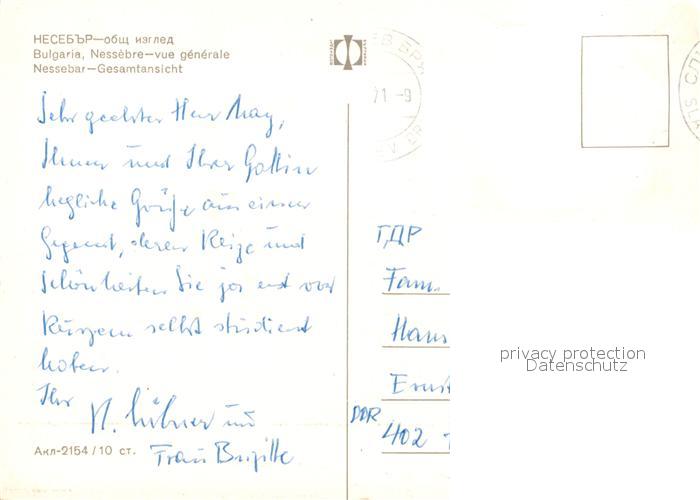 НЕСЕБЪР—общ изглед
Bulgaria, Nessèbre—vue générale
Nessebar—Gesamtansicht
Sehr geehrter Herr May,
Ihnen und Ihrer Gattin
herzliche Grüße aus einer
Gegend, deren Reize und
Schönheiten Sie ja erst vor
Kurzem selbst studiert
haben.
Ihr
H. Hübner und
Frau Brigitte
Акл-2154/10 ст.
71 -9
ГДР
Fam.
Hans
Ernst
DDR
402
privacy protection
Datenschutz